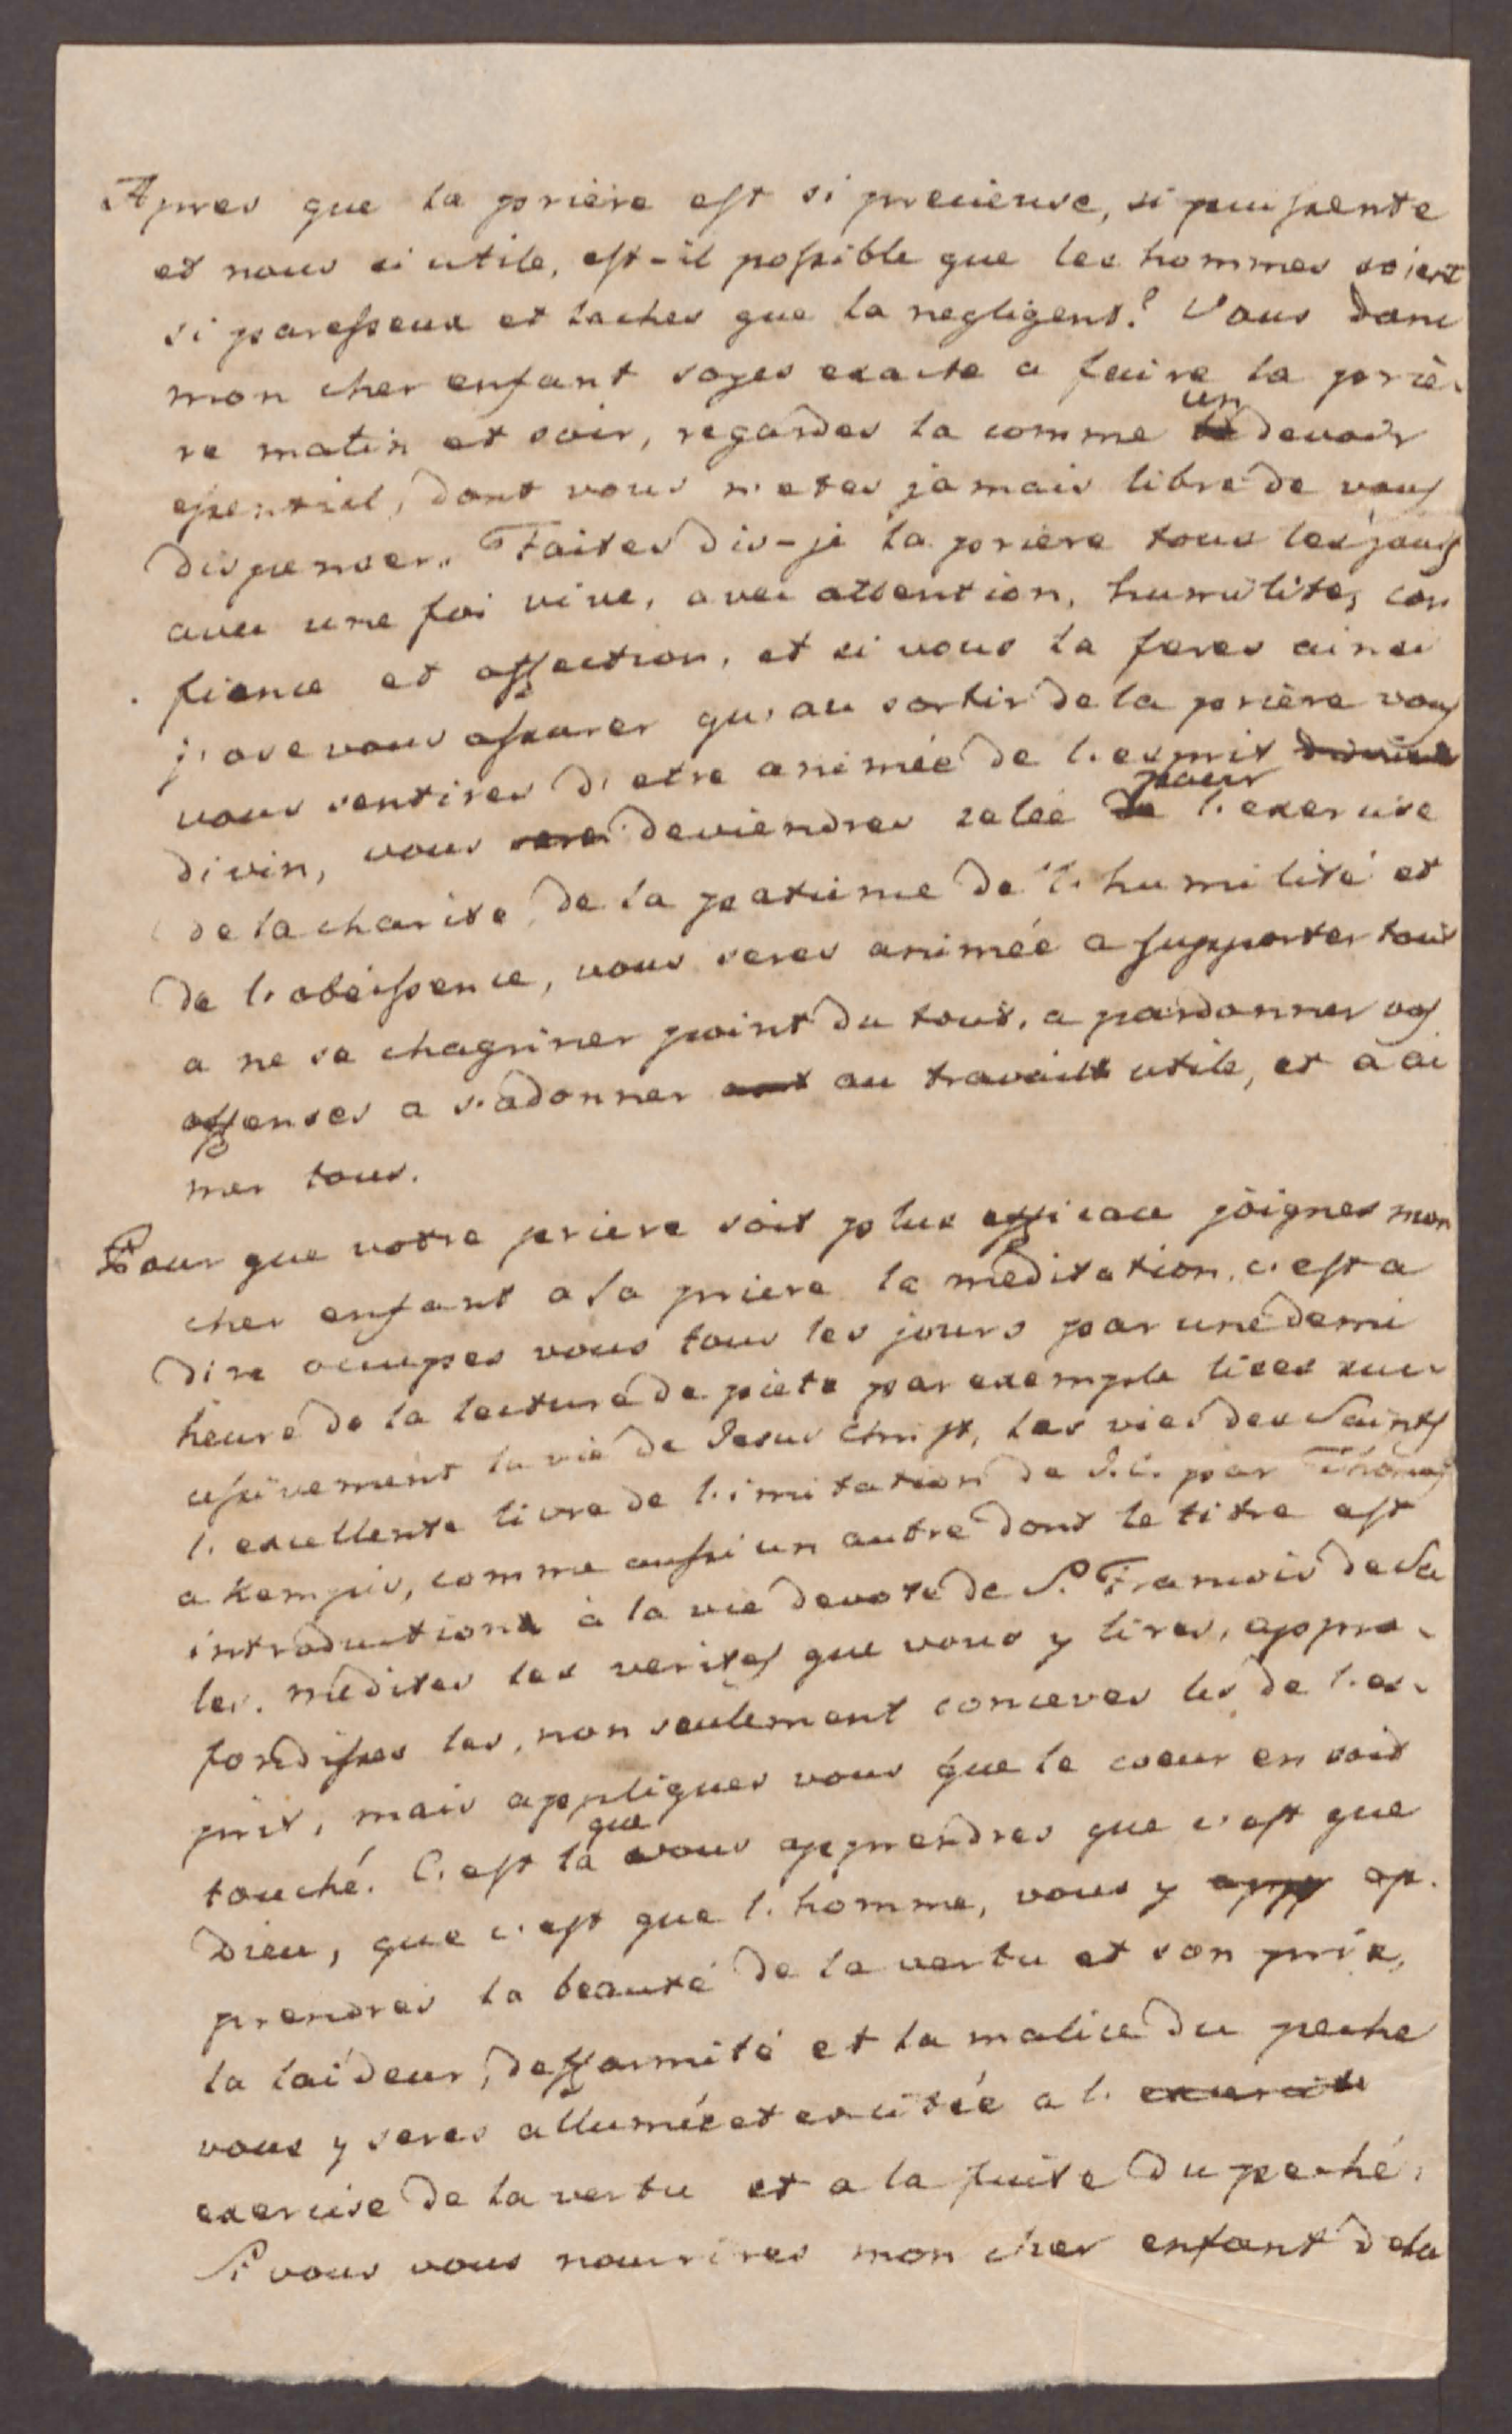 Apres que la prière est si precieuse, si puissente
et nous si utile, est-il possible que les hommes soient
si paresseux et laches que la negligens? Vous donc
mon cher enfant soyes exacte a faire la priè-
re matin et soir, regardes la comme un devoir
essentiel, dont vous n'etes jamais libre de vous
dispenser. Faites dis-je la prière tous les jours
avec une foi vive, avec attention, humilite, con
fience et affection, et si vous la feres ainsi
j'ose vous assurer qu'au sortir de la prière vous
vous sentires d'etre animée de l'esprit
divin, vous deviendres zelée pour l'exercise
de la charite, de la patience de l'humilité et
de l'obeissence, vous seres animée a supporter tout
a ne se chagriner point du tout, a pardonner vos
offenses a s'adonner au travail utile, et a ai
mer tous.
Pour que votre priere soit plus efficace joignes mon
cher enfant a la priere la meditation, c'est a
dire occupes vous tous les jours par une demi
heure de la lecture de piete par exemple lises suc-
cessivement la vie de Jesus Christ, les vies des Saints
l'excellente livre de l'imitation de J.C. par Thomas
a Kempis, comme aussi un autre dont le titre est
introduction à la vie devote de S. Francois de Sa
les. medites les verites que vous y lires, appro-
fondisses les, non seulement conceves les de l'es-
prit, mais appliques vous que le coeur en soit
touché. C'est là que vous apprendres que c'est que
Dieu, que c'est que l'homme, vous y ap-
prendres la beauté de la vertu et son prix,
la laideur, defformité et la malice du peche
vous y seres allumée et excitée a l'
exercise de la vertu et a la fuite du peché.
Si vous vous nourrires mon cher enfant de la